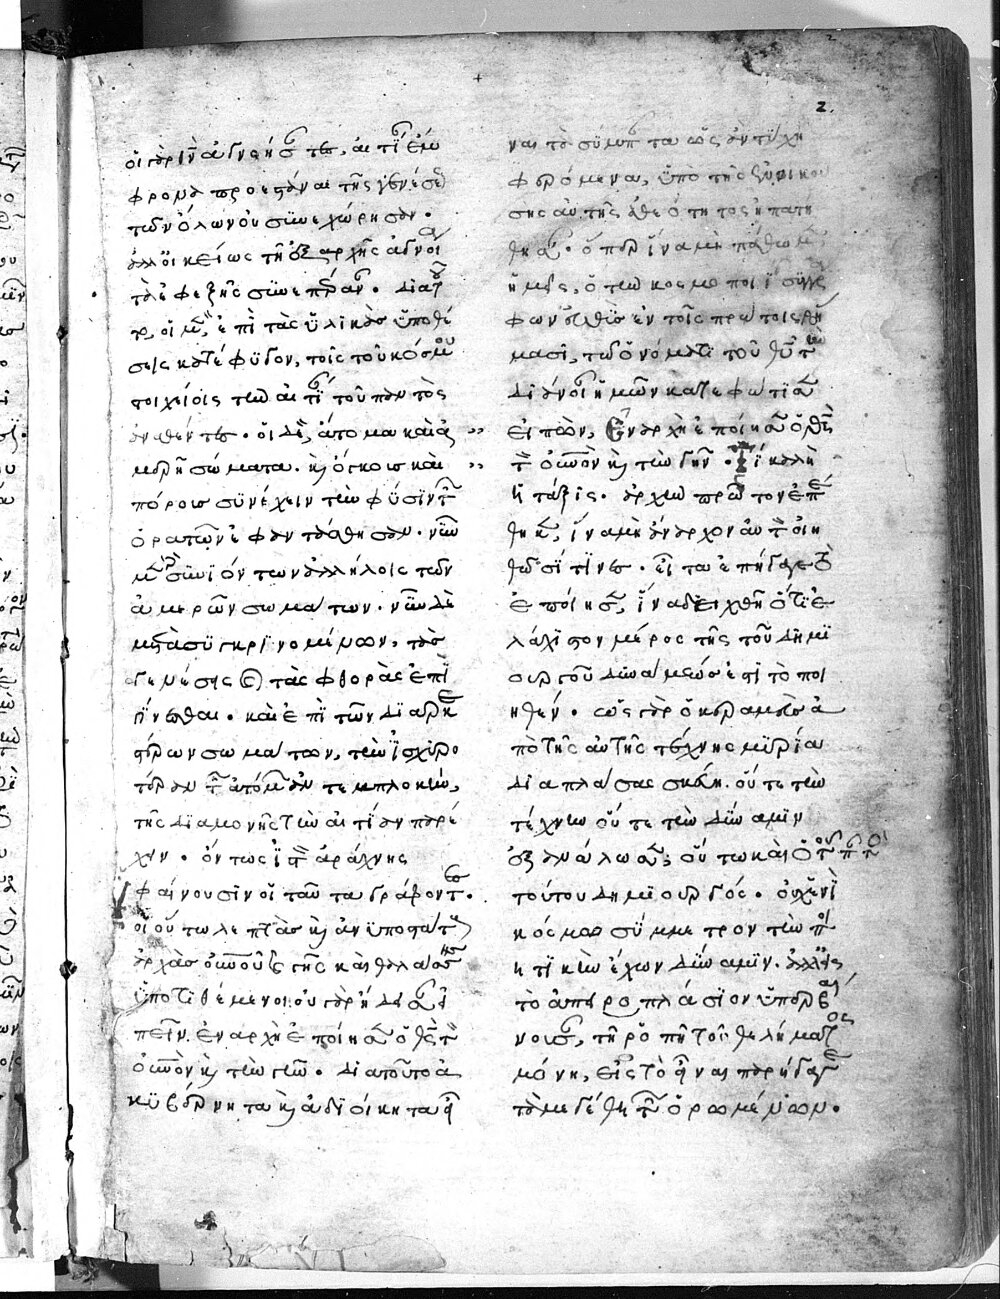 οἱ γὰρ θν̄ ἀγνοήσαντες, αἰτίαν ἔμ
φρονα προεστάναι τῆς γενέσεως
τῶν ὅλων οὐ συνεχώρησαν·
ἀλλ' οἰκείως τῇ ἐξ ἀρχῆς ἀγνοίᾳ
τὰ ἐφεξῆς συνεπέραναν· διὰ τοῦ
το, οἱ μὲν ἐπὶ τὰς ὑλικὰς ὑποθέ
σεις κατέφυγον, τοῖς τοῦ κόσμου
στοιχείοις τὴν αἰτίαν τοῦ παντὸς
ἀναθέντες· οἱ δὲ, ἄτομα καὶ ἀ
μερῆ σώματα· καὶ ὄγκοις καὶ
πόροις συνέχειν τὴν φύσιν τῶν
ὁρατῶν ἐφαντάσθησαν· νῦν
μὲν γὰρ συνιόντων ἀλλήλοις τῶν
ἀμερῶν σωμάτων· νῦν δὲ
μετασυγκρινομένων, τὰς
γενέσεις καὶ τὰς φθορὰς ἐπι
γίνεσθαι· καὶ ἐπὶ τῶν διαρκε
στέρων σωμάτων, τὴν ἰσχυρο
τέραν τῶν ἀτόμων ἀντεμπλοκὴν,
τῆς διαμονῆς τὴν αἰτίαν παρέ
χειν· ὄντως ἱστὸν ἀράχνης
φαίνουσιν οἱ ταῦτα γράφοντες·
οἱ οὕτω λεπτὰς καὶ ἀνυποστάτους
ἀρχὰς οὐνοῦ καὶ γῆς καὶ θαλάσσης
ὑποτιθέμενοι· οὐ γὰρ ᾔδεσαν εἰ
πεῖν· ἐν ἀρχῇ ἐποίησεν ὁ θς̄ τὸν
οὐνὸν καὶ τὴν γῆν· διὰ τοῦτο ἀ
κυβέρνητα καὶ ἀδιοίκητα εἶ
ναι τὰ σύμπαντα ὡς ἂν τύχῃ
φερόμενα, ὑπὸ τῆς ἐνοικού
σης αὐτῆς ἀθεότητος ἠπατή
θησαν· ὅπερ ἵνα μὴ πάθωμεν
ἡμεῖς, ὁ τὴν κοσμοποιίαν συγγρά
φων εὐθὺς ἐν τοῖς πρώτοις ῥή
μασι, τῷ ὀνόματι τοῦ θῦ τὴν
διάνοιαν ἡμῶν κατεφώτισεν
εἰπὼν, Ἐν ἀρχῇ ἐποίησεν ὁ θς̄
τὸν οὐνὸν καὶ τὴν γῆν· Τί καλὴ
ἡ τάξις· ἀρχὴν πρῶτον ἐπέ
θηκεν, ἵνα μὴ ἄναρχον αὐτὸν οἰη
θῶσί τινες· εἶτα ἐπήγαγε τὸ
ἐποίησεν, ἵνα δειχθῇ ὅτι ἐ
λάχιστον μέρος τῆς τοῦ δημι
ουργοῦ δυνάμεώς ἐστι τὸ ποι
ηθέν· ὡς γὰρ ὁ κεραμεὺς ἀ
πὸ τῆς αὐτῆς τέχνης μυρία
διαπλάσας σκεύη· οὔτε τὴν
τέχνην οὔτε τὴν δύναμιν
ἐξανάλωσεν· οὕτω καὶ ὁ τοῦ παντὸς
τούτου δημιουργός· οὐχ ἑνὶ
κόσμῳ σύμμετρον τὴν ποι
ητικὴν ἔχων δύναμιν· ἀλλ' εἰς
τὸ ἀπειροπλάσιον ὑπερβαί
νουσαν, τῇ ῥοπῇ τοῦ θελήματος
μόνῃ, εἰς τὸ εἶναι παρήγαγε
τὰ μεγέθη τῶν ὁρωμένων·
2.